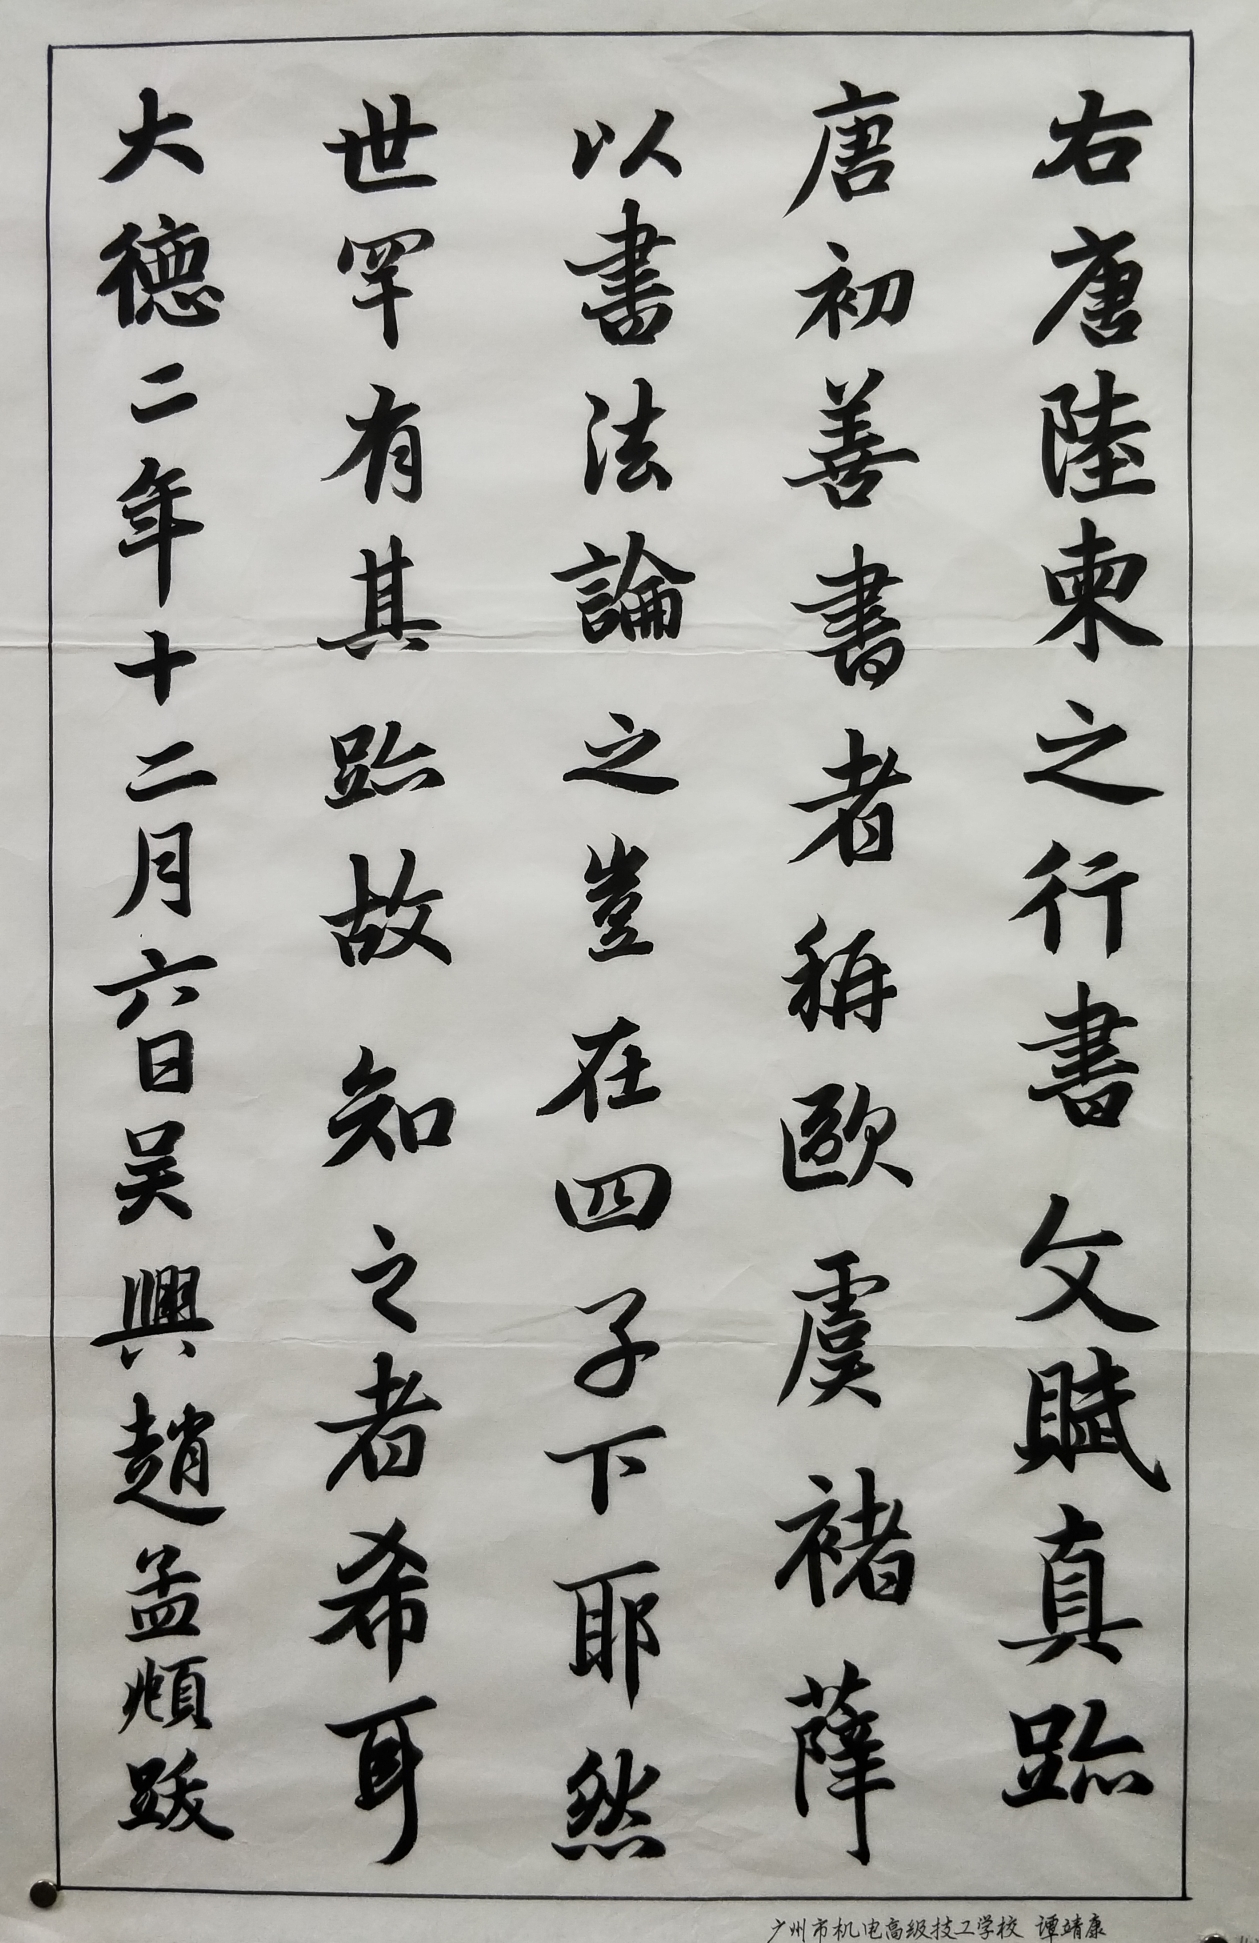 右唐陸柬之行書文賦真跡
唐初善書者稱歐虞褚薛
以書法論之豈在四子下耶然
世罕有其跡故知之者希耳
大德二年十二月六日吴興趙孟頫跋
广州市机电高级技工学校 谭靖康